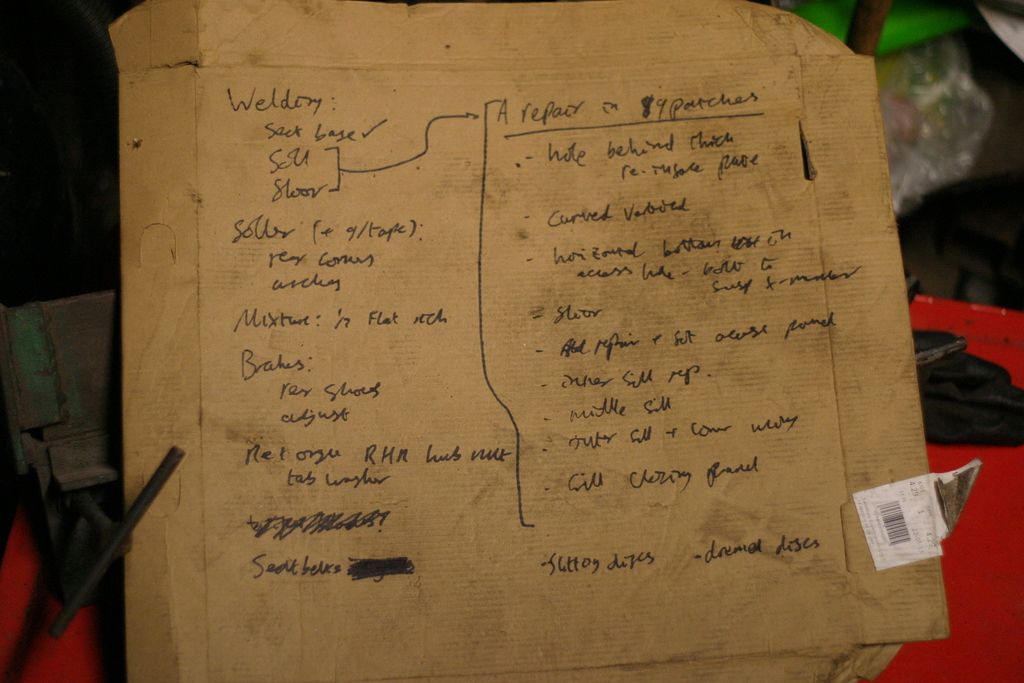 Welding:
seat base ✓
Sill
floor
filler (+ g/tape):
rear corners
arches
Mixture: ½ flat rich
Brakes:
rear shoes
adjust
Retorque RHR hub nut
tab washer
Seatbelts
A repair in 9 patches
- hole behind thick
re-inforce plate
- curved vertical
- horizontal bottom
access hole - bolt to
susp x-member
- floor
- repair + fit access panel
- inner sill rep.
- middle sill
- outer sill + corner
- Sill closing panel
- slitting discs
- dremel discs